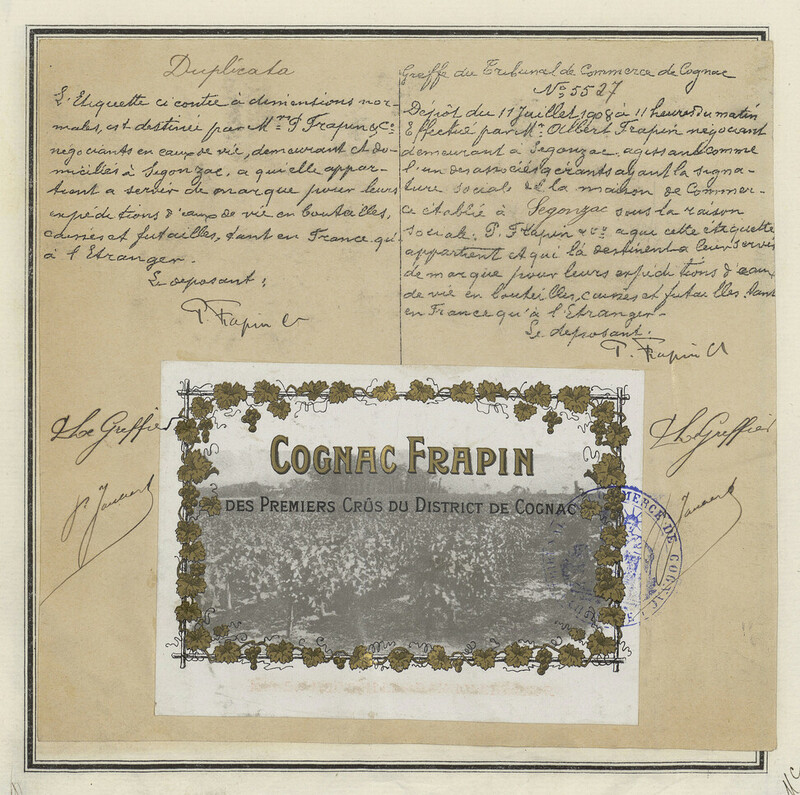 Duplicata
L'Etiquette ci contre à dimensions nor-
males, est destinée par Mrs P. Frapin & Co
négociants en eaux de vie, demeurant et do-
miciliés à Segonzac, a qui elle appar-
tient a servir de marque pour leurs
expéditions d'eaux de vie en bouteilles,
caisses et futailles, tant en France qu'
à l'Etranger.
Le deposant:
P. Frapin Co
Greffe du Tribunal de Commerce de Cognac
No 5527
Dépôt du 11 Juillet 1908 à 11 heures du matin
Effectué par Mr Albert Frapin négociant
demeurant à Segonzac, agissant comme
l'un des associés gérants ayant la signa-
ture sociale de la maison de Commer-
ce établie à Segonzac sous la raison
sociale: P. Frapin & Co a qui cette étiquette
appartient et qui la destinent a leur servir
de marque pour leurs expéditions d'eaux
de vie en bouteilles, caisses et futailles tant
en France qu'à l'Etranger.
Le deposant:
P. Frapin Co
Le Greffier
Le Greffier
COGNAC FRAPIN
DES PREMIERS CRÛS DU DISTRICT DE COGNAC
COMMERCE DE COGNAC